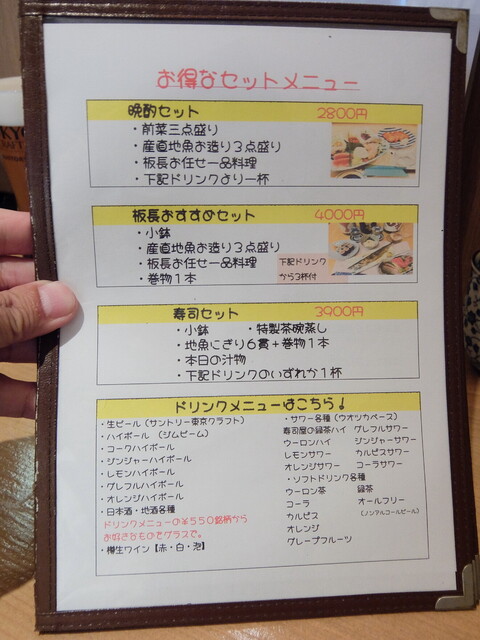 お得なセットメニュー
晩酌セット 2800円
・前菜三点盛り
・産直地魚お造り3点盛り
・板長お任せ一品料理
・下記ドリンクより一杯
板長おすすめセット 4000円
・小鉢
・産直地魚お造り3点盛り
・板長お任せ一品料理
・巻物1本
下記ドリンク
から3杯付
寿司セット 3900円
・小鉢 ・特製茶碗蒸し
・地魚にぎり6貫+巻物1本
・本日の汁物
・下記ドリンクのいずれか1杯
ドリンクメニューはこちら↓
・生ビール(サントリー東京クラフト)
・ハイボール (ジムビーム)
・コークハイボール
・ジンジャーハイボール
・レモンハイボール
・グレフルハイボール
・オレンジハイボール
・日本酒・地酒各種
ドリンクメニューの¥550銘柄から
お好きなものでグラスで。
・樽生ワイン【赤・白・泡】
・サワー各種(ウオッカベース)
寿司屋の緑茶ハイ グレフルサワー
ウーロンハイ ジンジャーサワー
レモンサワー カルピスサワー
オレンジサワー コーラサワー
・ソフトドリンク各種
ウーロン茶 緑茶
コーラ オールフリー
カルピス (ノンアルコールビール)
オレンジ
グレープフルーツ